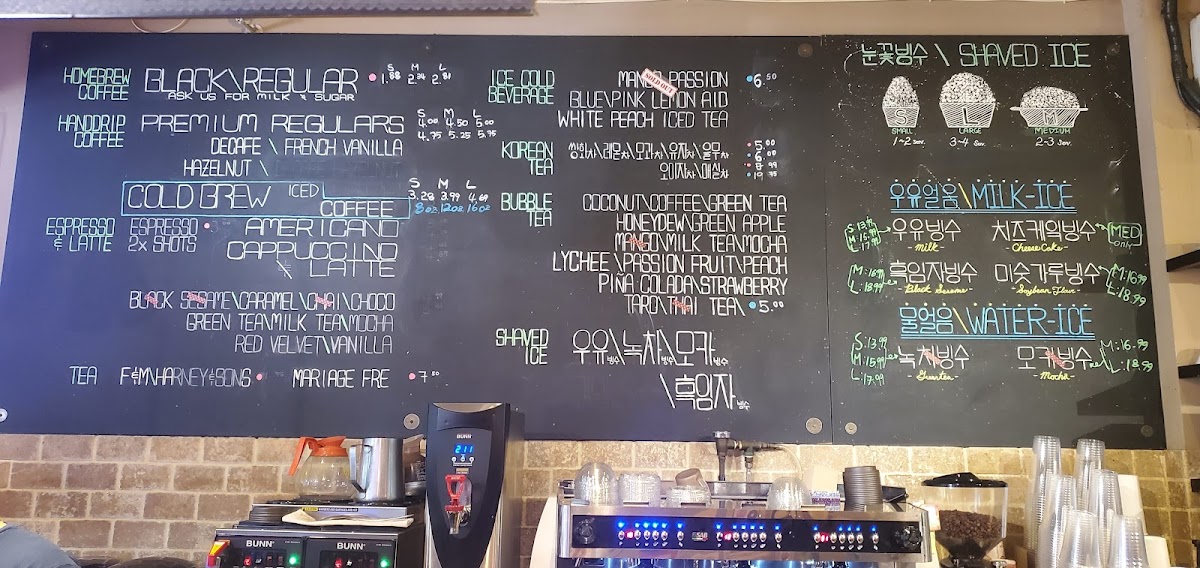 HOMEBREW
COFFEE
BLACK\REGULAR
ASK US FOR MILK & SUGAR
S M L
1.88 2.34 2.81
HANDDRIP
COFFEE
PREMIUM REGULARS
S M L
4.00 4.50 5.00
4.75 5.25 5.75
DECAFE \ FRENCH VANILLA
HAZELNUT \
COLD BREW ICED
COFFEE
S M L
3.28 3.99 4.69
8oz 12oz 16oz
ESPRESSO
& LATTE
ESPRESSO
2X SHOTS
AMERICANO
CAPPUCCINO
LATTE
BLACK SESAME\CARAMEL\CHAI\CHOCO
GREEN TEA\MILK TEA\MOCHA
RED VELVET\VANILLA
TEA F&M\HARNEY&SONS MARIAGE FRE 7.00
ICE COLD
BEVERAGE
MANGO PASSION 6.50
SOLD OUT
BLUE\PINK LEMON AID
WHITE PEACH ICED TEA
KOREAN
TEA
쌍화차\레몬차\모과차\유자차\율무차
오미자차\매실차
5.00
6.00
BUBBLE
TEA
COCONUT\COFFEE\GREEN TEA
HONEYDEW\GREEN APPLE
MANGO\MILK TEA\MOCHA
LYCHEE \PASSION FRUIT\PEACH
PIÑA COLADA\STRAWBERRY
TARO\THAI TEA\ 5.00
SHAVED
ICE
우유빙수\녹차빙수\모카빙수
\흑임자빙수
눈꽃빙수 \ SHAVED ICE
S L M
SMALL LARGE MEDIUM
1~2 Ser. 3~4 Ser. 2~3 Ser.
우유얼음\MILK-ICE
S:13.99
M:15.99
L:17.99
우유빙수
-Milk-
치즈케익빙수
-Cheese Cake-
MED
only
M:16.99
L:18.99
흑임자빙수
-Black Sesame-
미숫가루빙수
-Soybean Flour-
M:16.99
L:18.99
물얼음\WATER-ICE
S:13.99
M:15.99
L:17.99
녹차빙수
-Greentea-
모카빙수
-Mocha-
M:16.99
L:18.99
BUNN
211
BUNN
BUNN